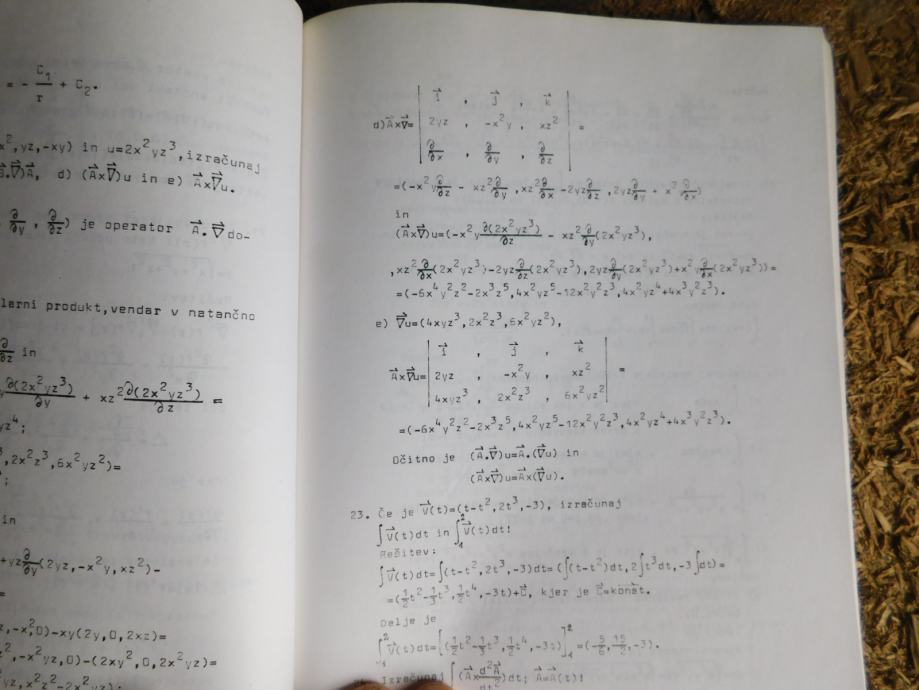 = - C₁/r + C₂.
x²,yz,-xy) in u=2x²yz³,izračunaj
.∇⃗)A⃗, d) (A⃗x∇⃗)u in e) A⃗x∇⃗u.
∂/∂y , ∂/∂z) je operator A⃗.∇⃗ do-
larni produkt,vendar v natančno
∂/∂z in
∂(2x²yz³)/∂y + xz²∂(2x²yz³)/∂z =
yz⁴;
,2x²z³,6x²yz²)=
;
in
+yz∂/∂y(2yz,-x²y,xz²)-
=
z,-x²,0)-xy(2y,0,2xz)=
²,-x²yz,0)-(2xy²,0,2x²yz)=
d)A⃗x∇⃗= | i⃗ , j⃗ , k⃗ |
| 2yz , -x²y , xz² | =
| ∂/∂x , ∂/∂y , ∂/∂z |
=(-x²y∂/∂z - xz²∂/∂y ,xz²∂/∂x -2yz∂/∂z ,2yz∂/∂y + x²y∂/∂x)
in
(A⃗x∇⃗)u=(-x²y∂(2x²yz³)/∂z - xz²∂/∂y(2x²yz³),
,xz²∂/∂x(2x²yz³)-2yz∂/∂z(2x²yz³),2yz∂/∂y(2x²yz³)+x²y∂/∂x(2x²yz³))=
=(-6x⁴y²z²-2x³z⁵,4x²yz⁵-12x²y²z³,4x²yz⁴+4x³y²z³).
e) ∇⃗u=(4xyz³,2x²z³,6x²yz²),
| i⃗ , j⃗ , k⃗ |
A⃗x∇⃗u= | 2yz , -x²y , xz² | =
| 4xyz³ , 2x²z³ , 6x²yz² |
=(-6x⁴y²z²-2x³z⁵,4x²yz⁵-12x²y²z³,4x²yz⁴+4x³y²z³).
Očitno je (A⃗.∇⃗)u=A⃗.(∇⃗u) in
(A⃗x∇⃗)u=A⃗x(∇⃗u).
23. Če je V⃗(t)=(t-t²,2t³,-3), izračunaj
∫V⃗(t)dt in ∫₁²V⃗(t)dt!
Rešitev:
∫V⃗(t)dt=∫(t-t²,2t³,-3)dt=(∫(t-t²)dt,2∫t³dt,-3∫dt)=
=(1/2t²-1/3t³,1/2t⁴,-3t)+C⃗, kjer je C⃗=konst.
Dalje je
∫₁²V⃗(t)dt=[(1/2t²-1/3t³,1/2t⁴,-3t)]₁²=(-5/6,15/2,-3).
Izračunaj ∫(A⃗xd²A⃗/dt²)dt; A⃗=A⃗(t)!